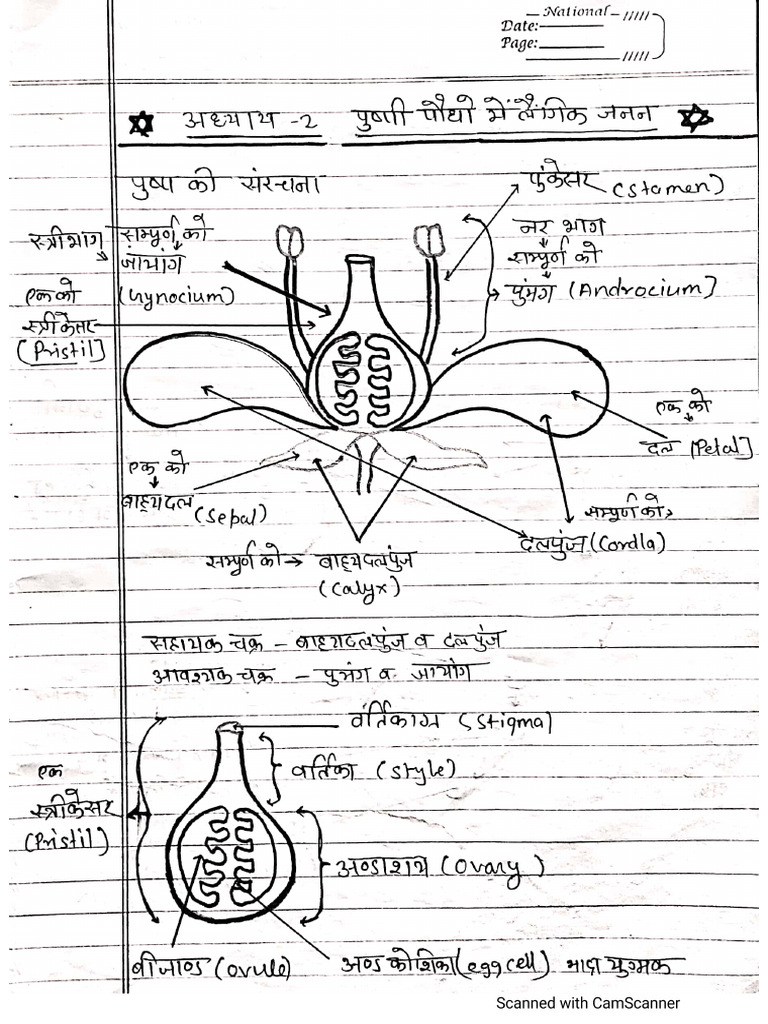 National
Date:
Page:
अध्याय -2 पुष्पी पौधो में लैंगिक जनन
पुष्प की संरचना
पुंकेसर (Stamen)
स्त्रीभाग सम्पूर्ण को
जायांग
(Gynocium)
नर भाग
सम्पूर्ण को
पुंमंग (Androcium)
एक को
स्त्रीकेसर
(Pristil)
एक को
दल (Petal)
एक को
बाह्यदल (Sepal)
सम्पूर्ण को
दलपुंज (Corolla)
सम्पूर्ण को → बाह्यदलपुंज
(Calyx)
सहायक चक्र – बाह्यदलपुंज व दलपुंज
आवश्यक चक्र – पुमंग व जायांग
वर्तिकाग्र (Stigma)
वर्तिका (Style)
एक
स्त्रीकेसर
(Pristil)
अण्डाशय (Ovary)
बीजाण्ड (Ovule)
अण्ड कोशिका (egg cell) मादा युग्मक
Scanned with CamScanner